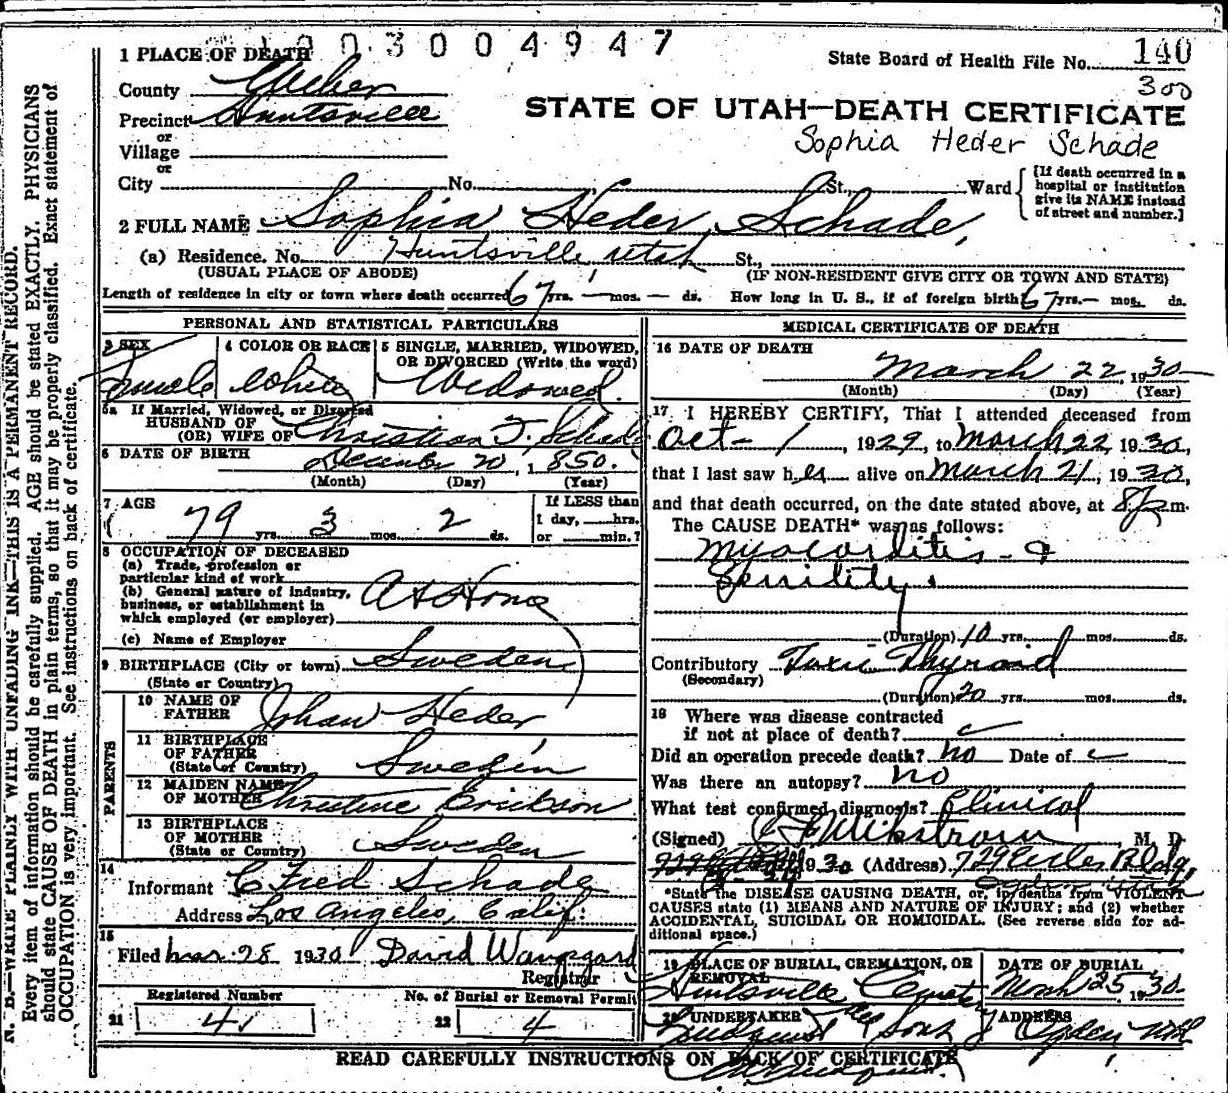 003004947
1 PLACE OF DEATH
State Board of Health File No. 140
300
County Weber
STATE OF UTAH—DEATH CERTIFICATE
Precinct Huntsville
or
Sophia Heder Schade
Village
or
City No. St., Ward
[If death occurred in a
hospital or institution
give its NAME instead
of street and number.]
2 FULL NAME Sophia Heder Schade,
(a) Residence. No. Huntsville, Utah St.,
(USUAL PLACE OF ABODE) (IF NON-RESIDENT GIVE CITY OR TOWN AND STATE)
Length of residence in city or town where death occurred 67 yrs. — mos. — ds. How long in U. S., if of foreign birth 67 yrs. — mos. ds.
PERSONAL AND STATISTICAL PARTICULARS
3 SEX Female
4 COLOR OR RACE White
5 SINGLE, MARRIED, WIDOWED,
OR DIVORCED (Write the word)
Widowed.
5a If Married, Widowed, or Divorced
HUSBAND OF
(OR) WIFE OF Christian F. Schade
6 DATE OF BIRTH December 20, 1850.
(Month) (Day) (Year)
7 AGE
79 yrs. 3 mos. 2 ds.
If LESS than
1 day, hrs.
or min.?
8 OCCUPATION OF DECEASED
(a) Trade, profession or
particular kind of work
(b) General nature of industry,
business, or establishment in
which employed (or employer)
At Home
(c) Name of Employer
9 BIRTHPLACE (City or town) Sweden
(State or Country)
PARENTS
10 NAME OF
FATHER Johan Heder
11 BIRTHPLACE
OF FATHER
(State of Country) Sweden
12 MAIDEN NAME
OF MOTHER Christine Erickson
13 BIRTHPLACE
OF MOTHER
(State or Country) Sweden
14
Informant C Fred Schade
Address Los Angeles, Calif.
15
Filed Mar. 28 1930 David Wangsgard
Registrar
Registered Number
21 41
No. of Burial or Removal Permit
22 4
MEDICAL CERTIFICATE OF DEATH
16 DATE OF DEATH
March 22, 1930
(Month) (Day) (Year)
17 I HEREBY CERTIFY, That I attended deceased from
Oct - 1, 1929, to March 22, 1930,
that I last saw her alive on March 21, 1930,
and that death occurred, on the date stated above, at 8 m.
The CAUSE DEATH* was as follows:
Myocarditis - &
Senility.
(Duration) 10 yrs. mos. ds.
Contributory Toxic Thyroid
(Secondary)
(Duration) 20 yrs. mos. ds.
18 Where was disease contracted
if not at place of death?
Did an operation precede death? no Date of
Was there an autopsy? no
What test confirmed diagnosis? Clinical
(Signed) Wikstrom, M. D.
1930 (Address) 729 Eccles Bldg,
Ogden Utah
*State the DISEASE CAUSING DEATH, or, in deaths from VIOLENT
CAUSES state (1) MEANS AND NATURE OF INJURY; and (2) whether
ACCIDENTAL, SUICIDAL OR HOMICIDAL. (See reverse side for ad-
ditional space.)
19 PLACE OF BURIAL, CREMATION, OR
REMOVAL
Huntsville Cemetery
DATE OF BURIAL
March 25, 1930.
20 UNDERTAKER
Lindquist & Sons
ADDRESS
Ogden Utah
READ CAREFULLY INSTRUCTIONS ON BACK OF CERTIFICATE
N. B.—WRITE PLAINLY WITH UNFADING INK—THIS IS A PERMANENT RECORD.
Every item of information should be carefully supplied. AGE should be stated EXACTLY. PHYSICIANS
should state CAUSE OF DEATH in plain terms, so that it may be properly classified. Exact statement of
OCCUPATION is very important. See instructions on back of certificate.